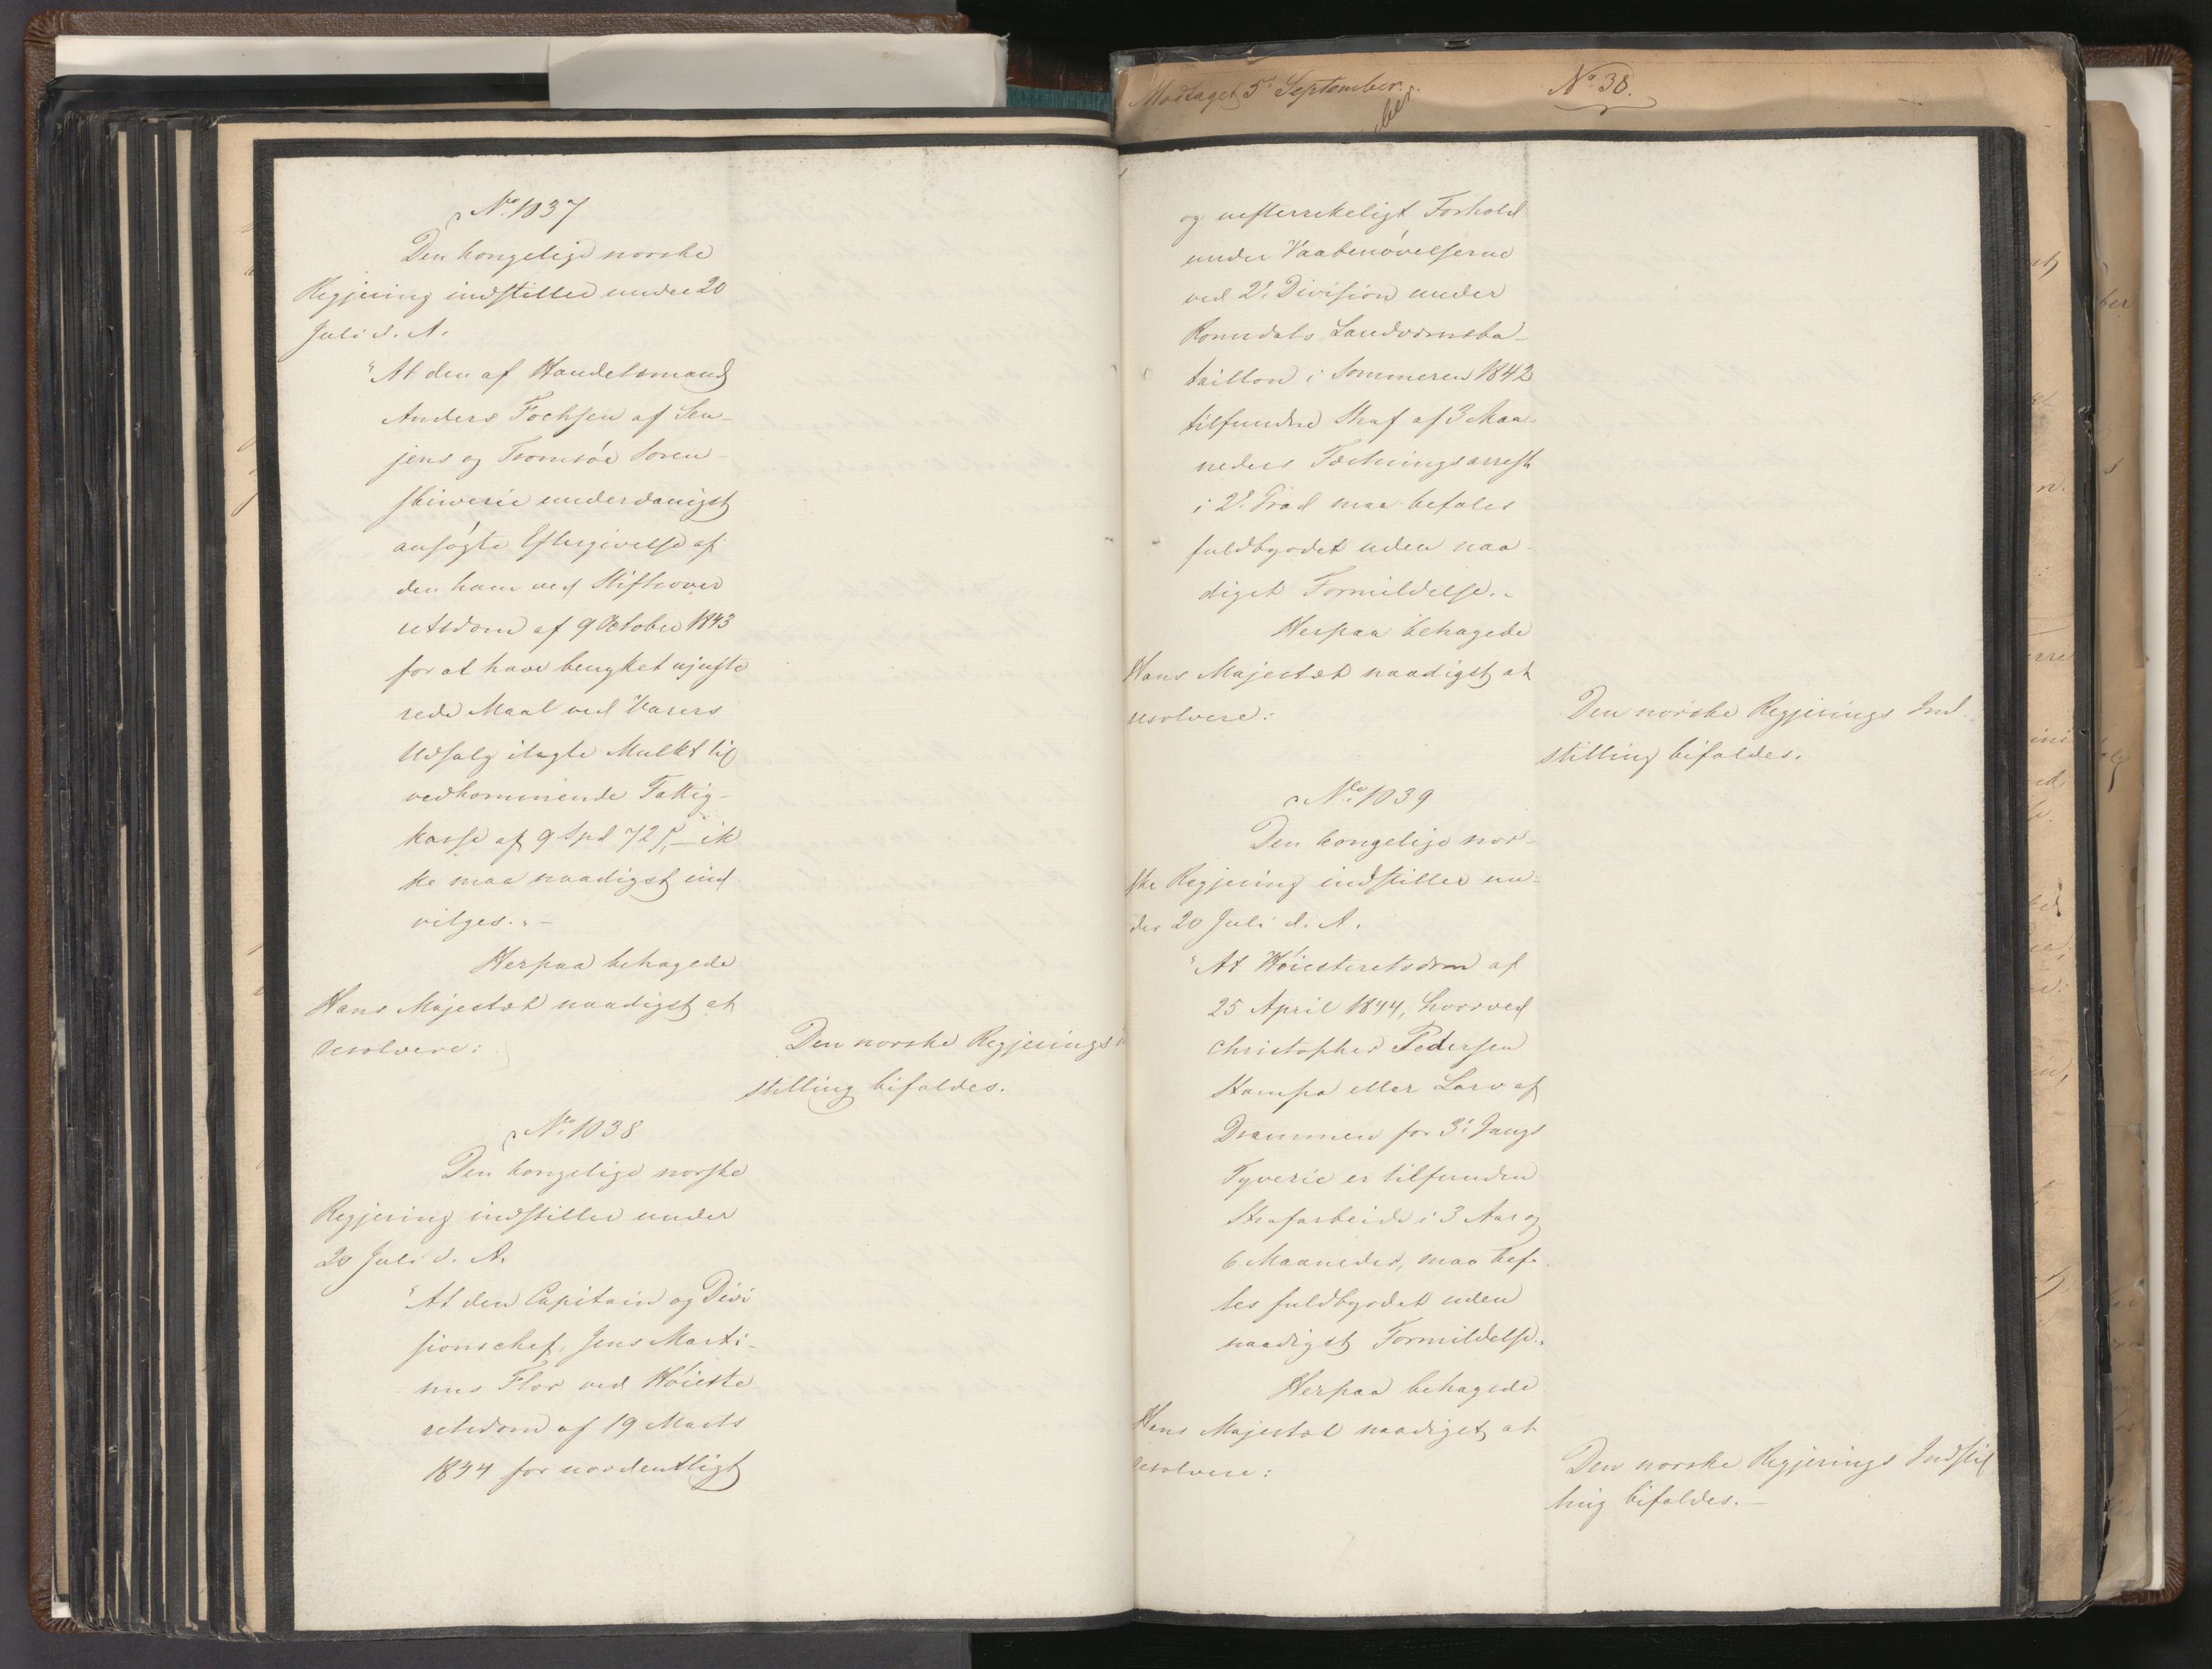 No. 1037
Den kongelige norske
Regjering indstiller under 20
Juli d. A.
"At den af Handelsmand
Anders Fochsen af Sen-
jens og Tromsöe Soren-
skiverie underdanigst
ansøgte Eftergivelse af
den ham ved Stiftsover
retsdom af 9 October 1843
for at have benyttet ujuste
rede Maal ved Varers
Udsalg ilagte Mulkt til
vedkommende Fattig-
kasse af 9 Spd 72 ß, - ik
ke maa naadigst ind
vilges." -
Herpaa behagede
Hans Majestæt naadigst at
resolvere:
Den norske Regjerings
stilling bifaldes.
No. 1038
Den kongelige norske
Regjering indstiller under
20 Juli d. A.
"At den Capitain og Divi
sionschef, Jens Marti-
nus Flor ved Höieste
retsdom af 19 Marts
1844 for uordentligt
Modtaget 5te September.
No. 38.
ber
og uefterretteligt Forhold
under Vaabenøvelserne
ved 2. Division under
Romsdals Landværnsba-
taillon i Sommeren 1842
tilfundne Straf af 3 Maa-
neders Fæstningsarrest
i 2. Grad maa befales
fuldbyrdet uden naa-
digst Formildelse. -
Herpaa behagede
Hans Majestæt naadigst at
resolvere:
Den norske Regjerings Ind-
stilling bifaldes.
No. 1039
Den kongelige nor-
ske Regjering indstiller un-
der 20 Juli d. A.
"At Höiesteretsdom af
25 April 1844, hvorved
Christopher Pedersen
Stampa eller Larv af
Drammen for 3. Gangs
Tyverie er tilfunden
Strafarbeide i 3 Aar og
6 Maaneder, maa befa-
les fuldbyrdet uden
naadigst Formildelse."
Herpaa behagede
Hans Majestæt naadigst at
resolvere:
Den norske Regjerings Indstil
ling bifaldes. -